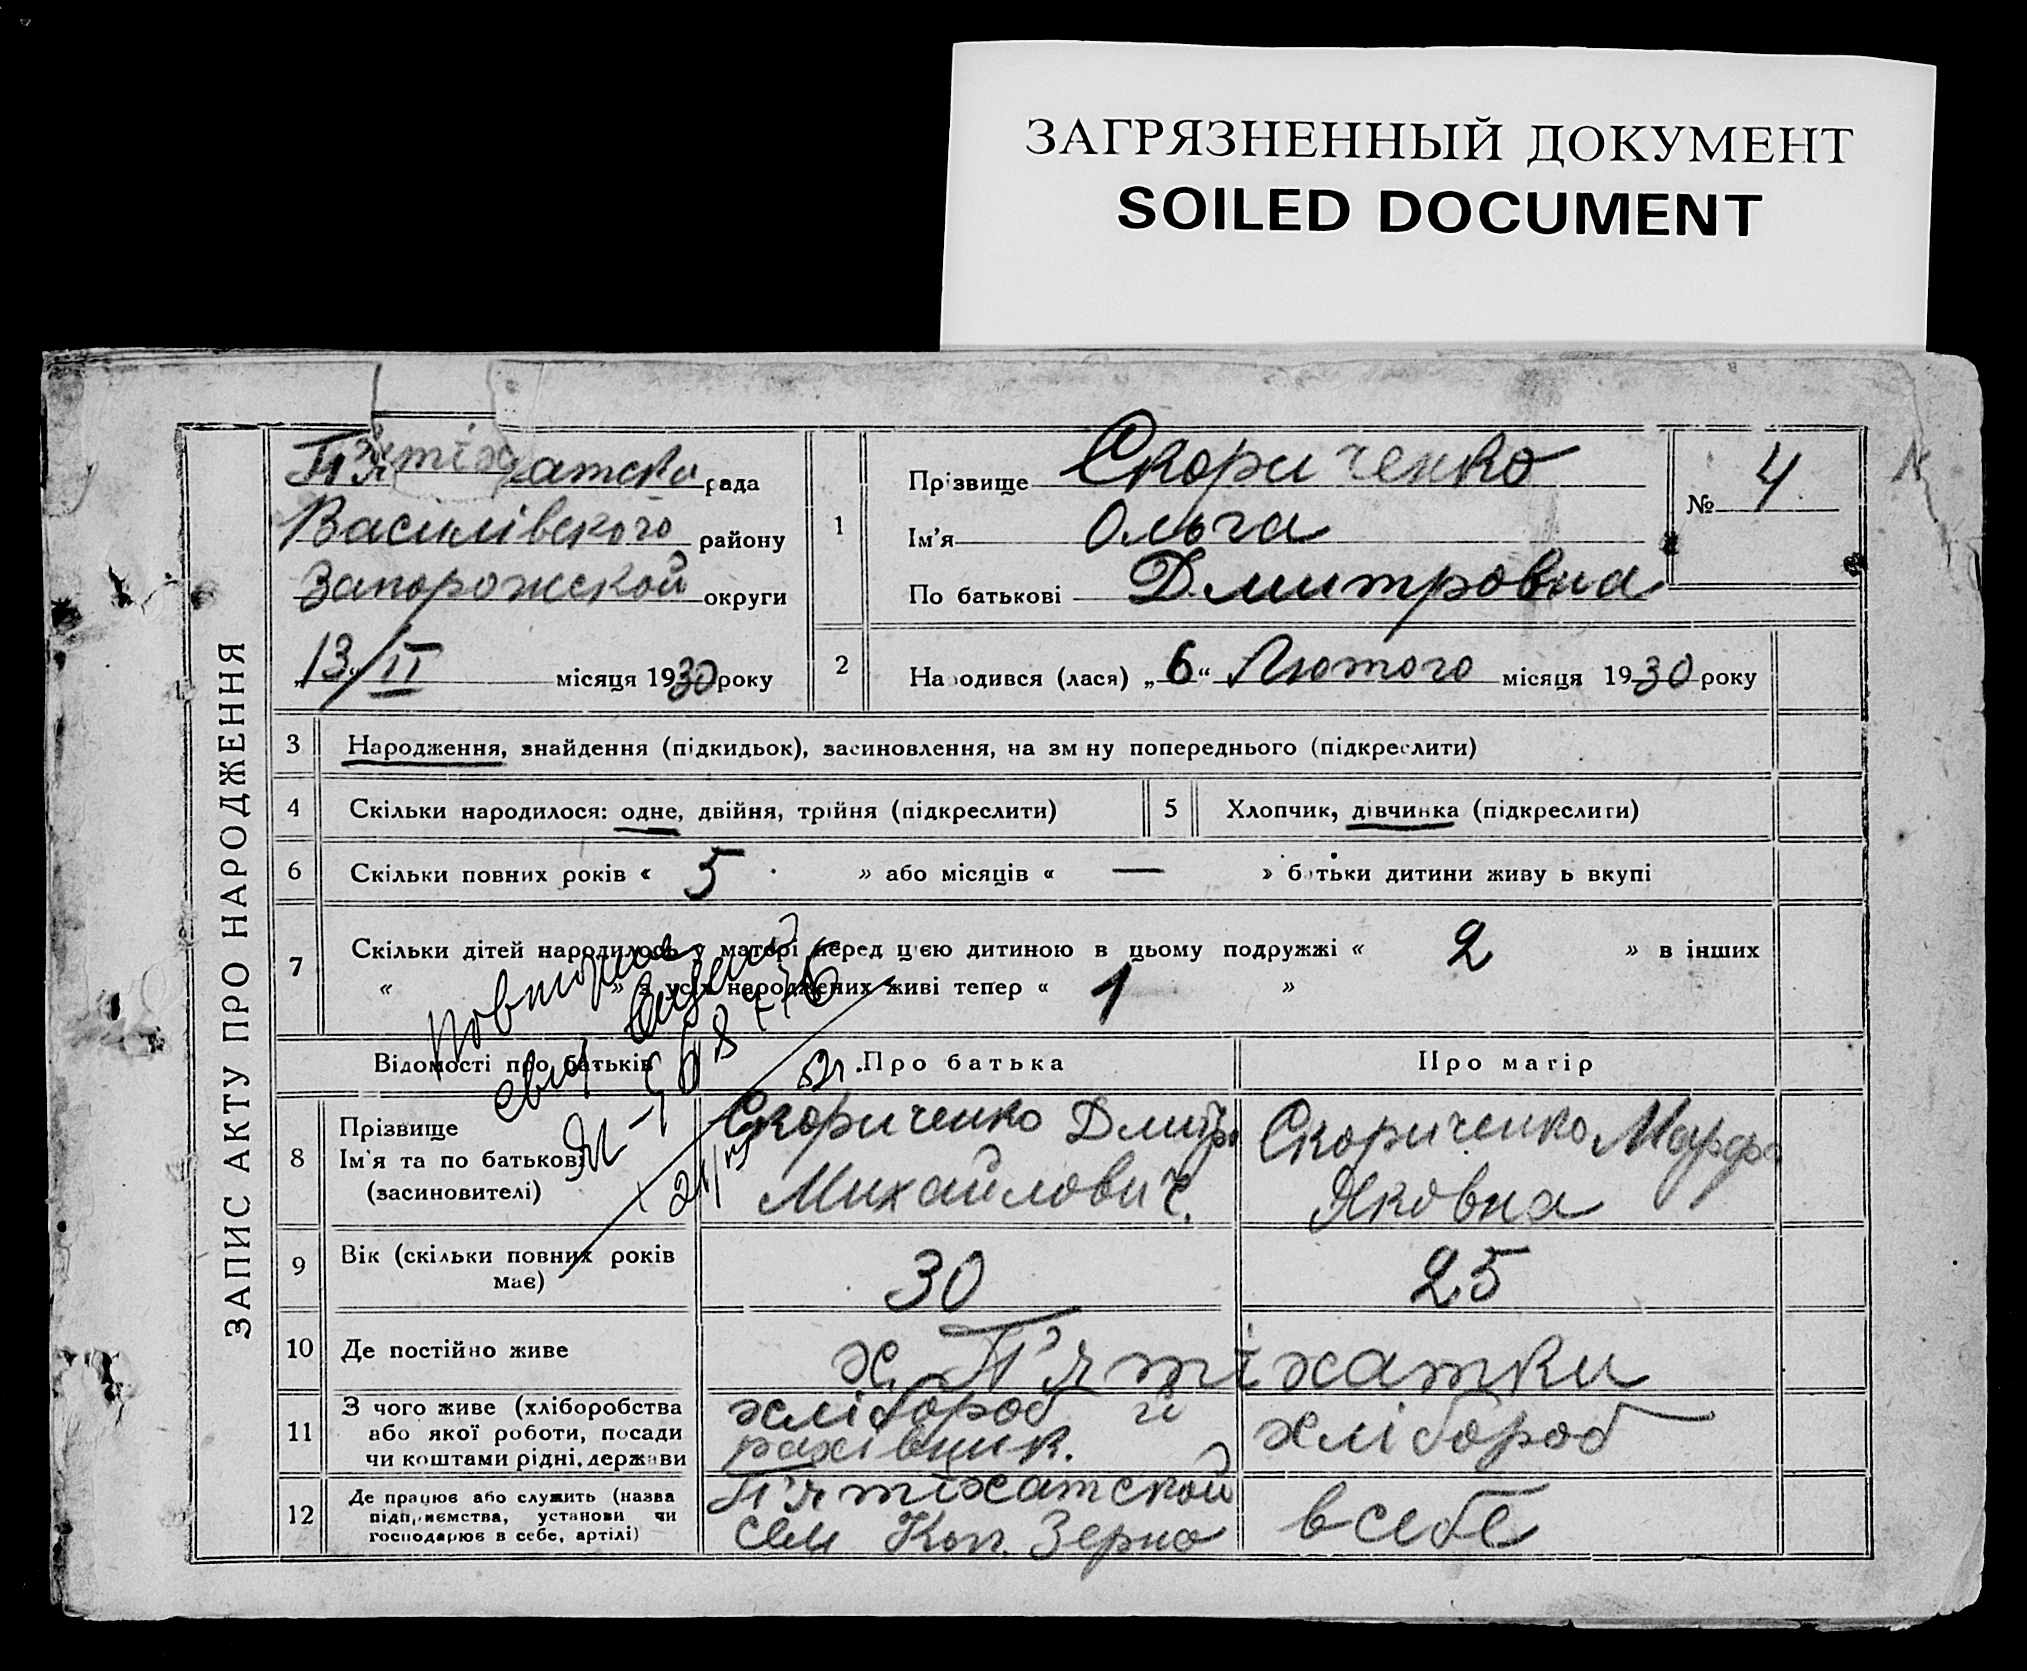 ЗАГРЯЗНЕННЫЙ ДОКУМЕНТ
SOILED DOCUMENT
ЗАПИС АКТУ ПРО НАРОДЖЕННЯ
П'ятіхатска рада
Василівского району
Запорожской округи
13/II місяця 1930 року
1
Прізвище Скориченко
Ім'я Ольга
По батькові Дмитровна
№ 4
2
Народився (лася) „6“ Лютого місяця 1930 року
3 Народження, знайдення (підкидьок), засиновлення, на зміну попереднього (підкреслити)
4 Скільки народилося: одне, двійня, трійня (підкреслити)
5 Хлопчик, дівчинка (підкреслити)
6 Скільки повних років « 5 » або місяців « — » батьки дитини живуть вкупі
7 Скільки дітей народилось у матері перед цією дитиною в цьому подружжі « 2 » в інших
« » з усіх народжених живі тепер « 1 »
Повторное
свид. выдано
52г.
Відомості про батьків Про батька Про матір
8 Прізвище
Ім'я та по батькові
(засиновителі)
Скориченко Дмитро
Михайлович.
Скориченко Марфа
Яковна
9 Вік (скільки повних років
має)
30 25
10 Де постійно живе х. П'ятіхатки
11 З чого живе (хліборобства
або якої роботи, посади
чи коштами рідні, держави
хлібороб и
рахівник.
хлібороб
12 Де працює або служить (назва
підприємства, установи чи
господарює в себе, артілі)
П'ятіхатской
сел Коп. Зерно
в себе